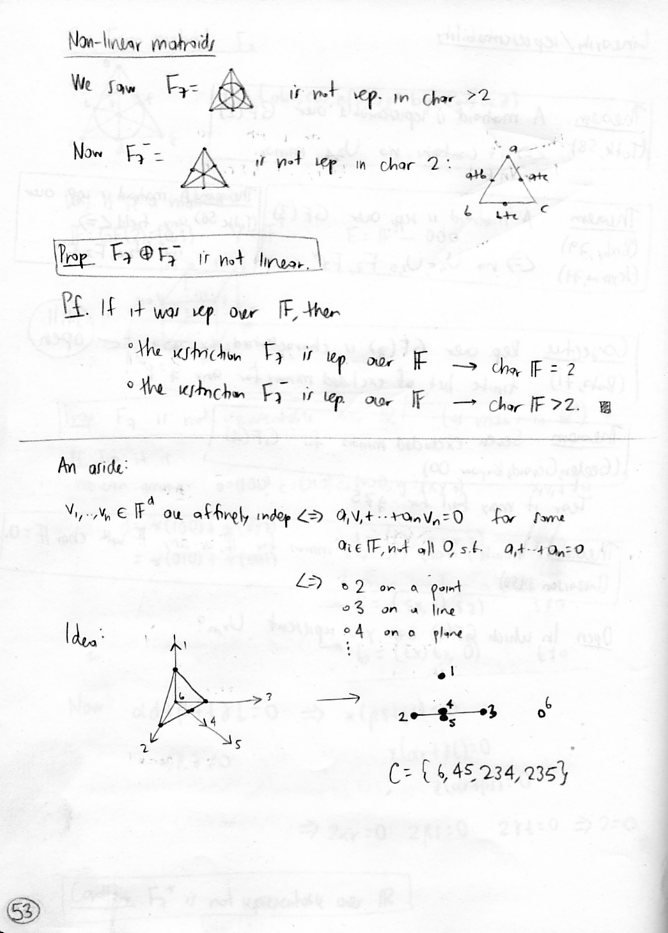 Non-linear matroids
We saw F₇ = is not rep. in char >2
Now F₇⁻ = is not rep in char 2:
a
a+b a+c
b b+c c
Prop F₇ ⊕ F₇⁻ is not linear.
Pf. If it was rep over 𝔽, then
° the restriction F₇ is rep over 𝔽 → char 𝔽 = 2
° the restriction F₇⁻ is rep. over 𝔽 → char 𝔽 >2.
An aside:
v₁,..,vₙ ∈ 𝔽ᵈ are affinely indep <=> a₁v₁+..+aₙvₙ=0 for some
aᵢ∈𝔽, not all 0, s.t. a₁+..+aₙ=0
<=> ° 2 on a point
° 3 on a line
° 4 on a plane
⋮
Idea:
1
6 3
4
2 5
1
2 4 3 6
5
C = {6, 45, 234, 235}
53